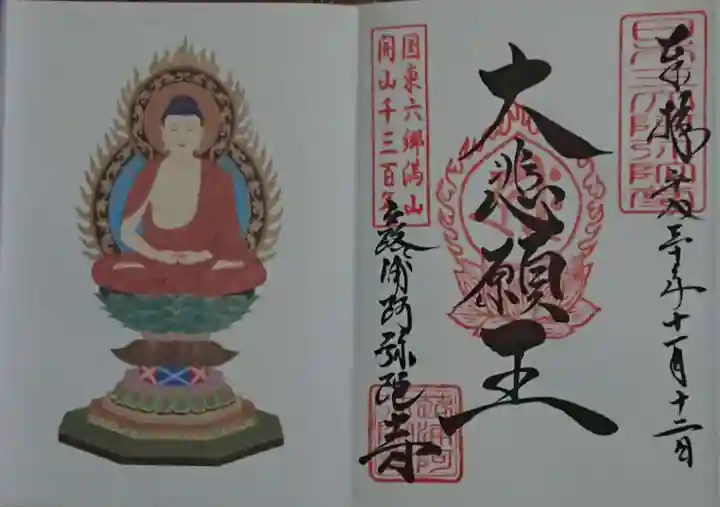 奉拝 平成三十年十一月十二日
大悲願王
国東六郷満山
開山千三百年
浦阿弥陀寺